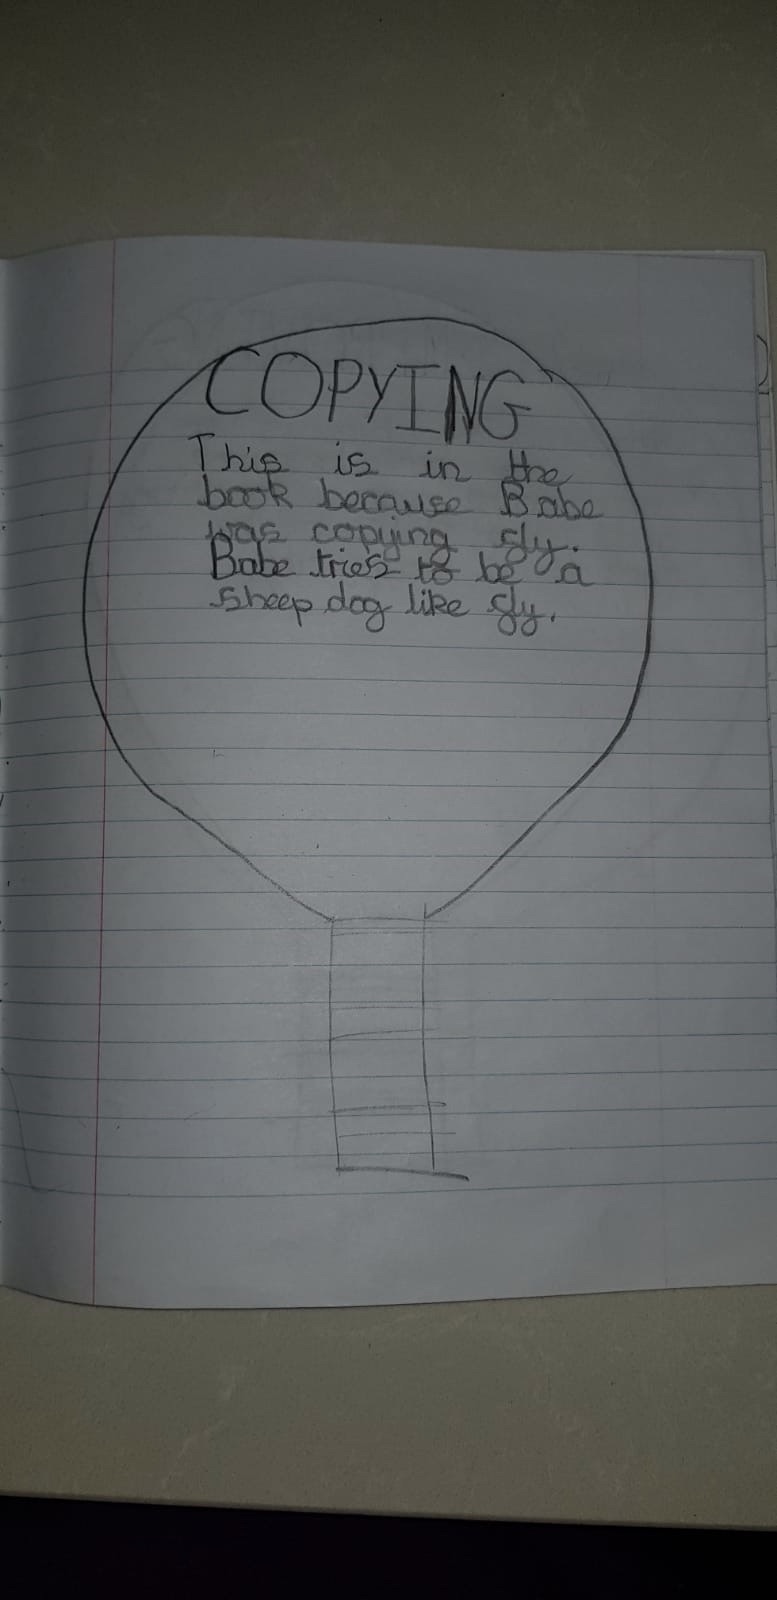 COPYING
This is in the
book because Babe
was copying fly.
Babe tries to be a
sheep dog like fly.